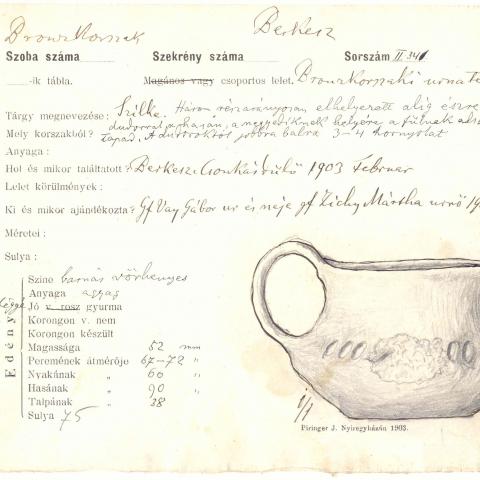 Bronzkorszak
Berkesz
Szoba száma Szekrény száma Sorszám II. 341
-ik tábla. Magános vagy csoportos lelet. Bronzkorszaki urna te
Tárgy megnevezése: Szilke. Három részarányosan elhelyezett alig észre
Mely korszakból? dudorral nyakán, a negyediknek helyére a fülnek alsó
tapad. A dudoroktól jobbra balra 3-4 hornyolat
Anyaga:
Hol és mikor találtatott? Berkesz: Csonkásdülő 1903 Februar
Lelet körülmények:
Ki és mikor ajándékozta? Gf Vay Gábor ur és neje gf Zichy Mártha urnő 19
Méretei:
Sulya:
Edény
Szine barnás vörhenyes
Anyaga agyag
Jó v. rosz gyurma
Korongon v. nem
Korongon készült
Magassága 52 mm
Peremének átmérője 67-72 "
Nyakának " 60 "
Hasának " 90 "
Talpának " 38
Sulya 75
1/1
Piringer J. Nyiregyházán 1903.